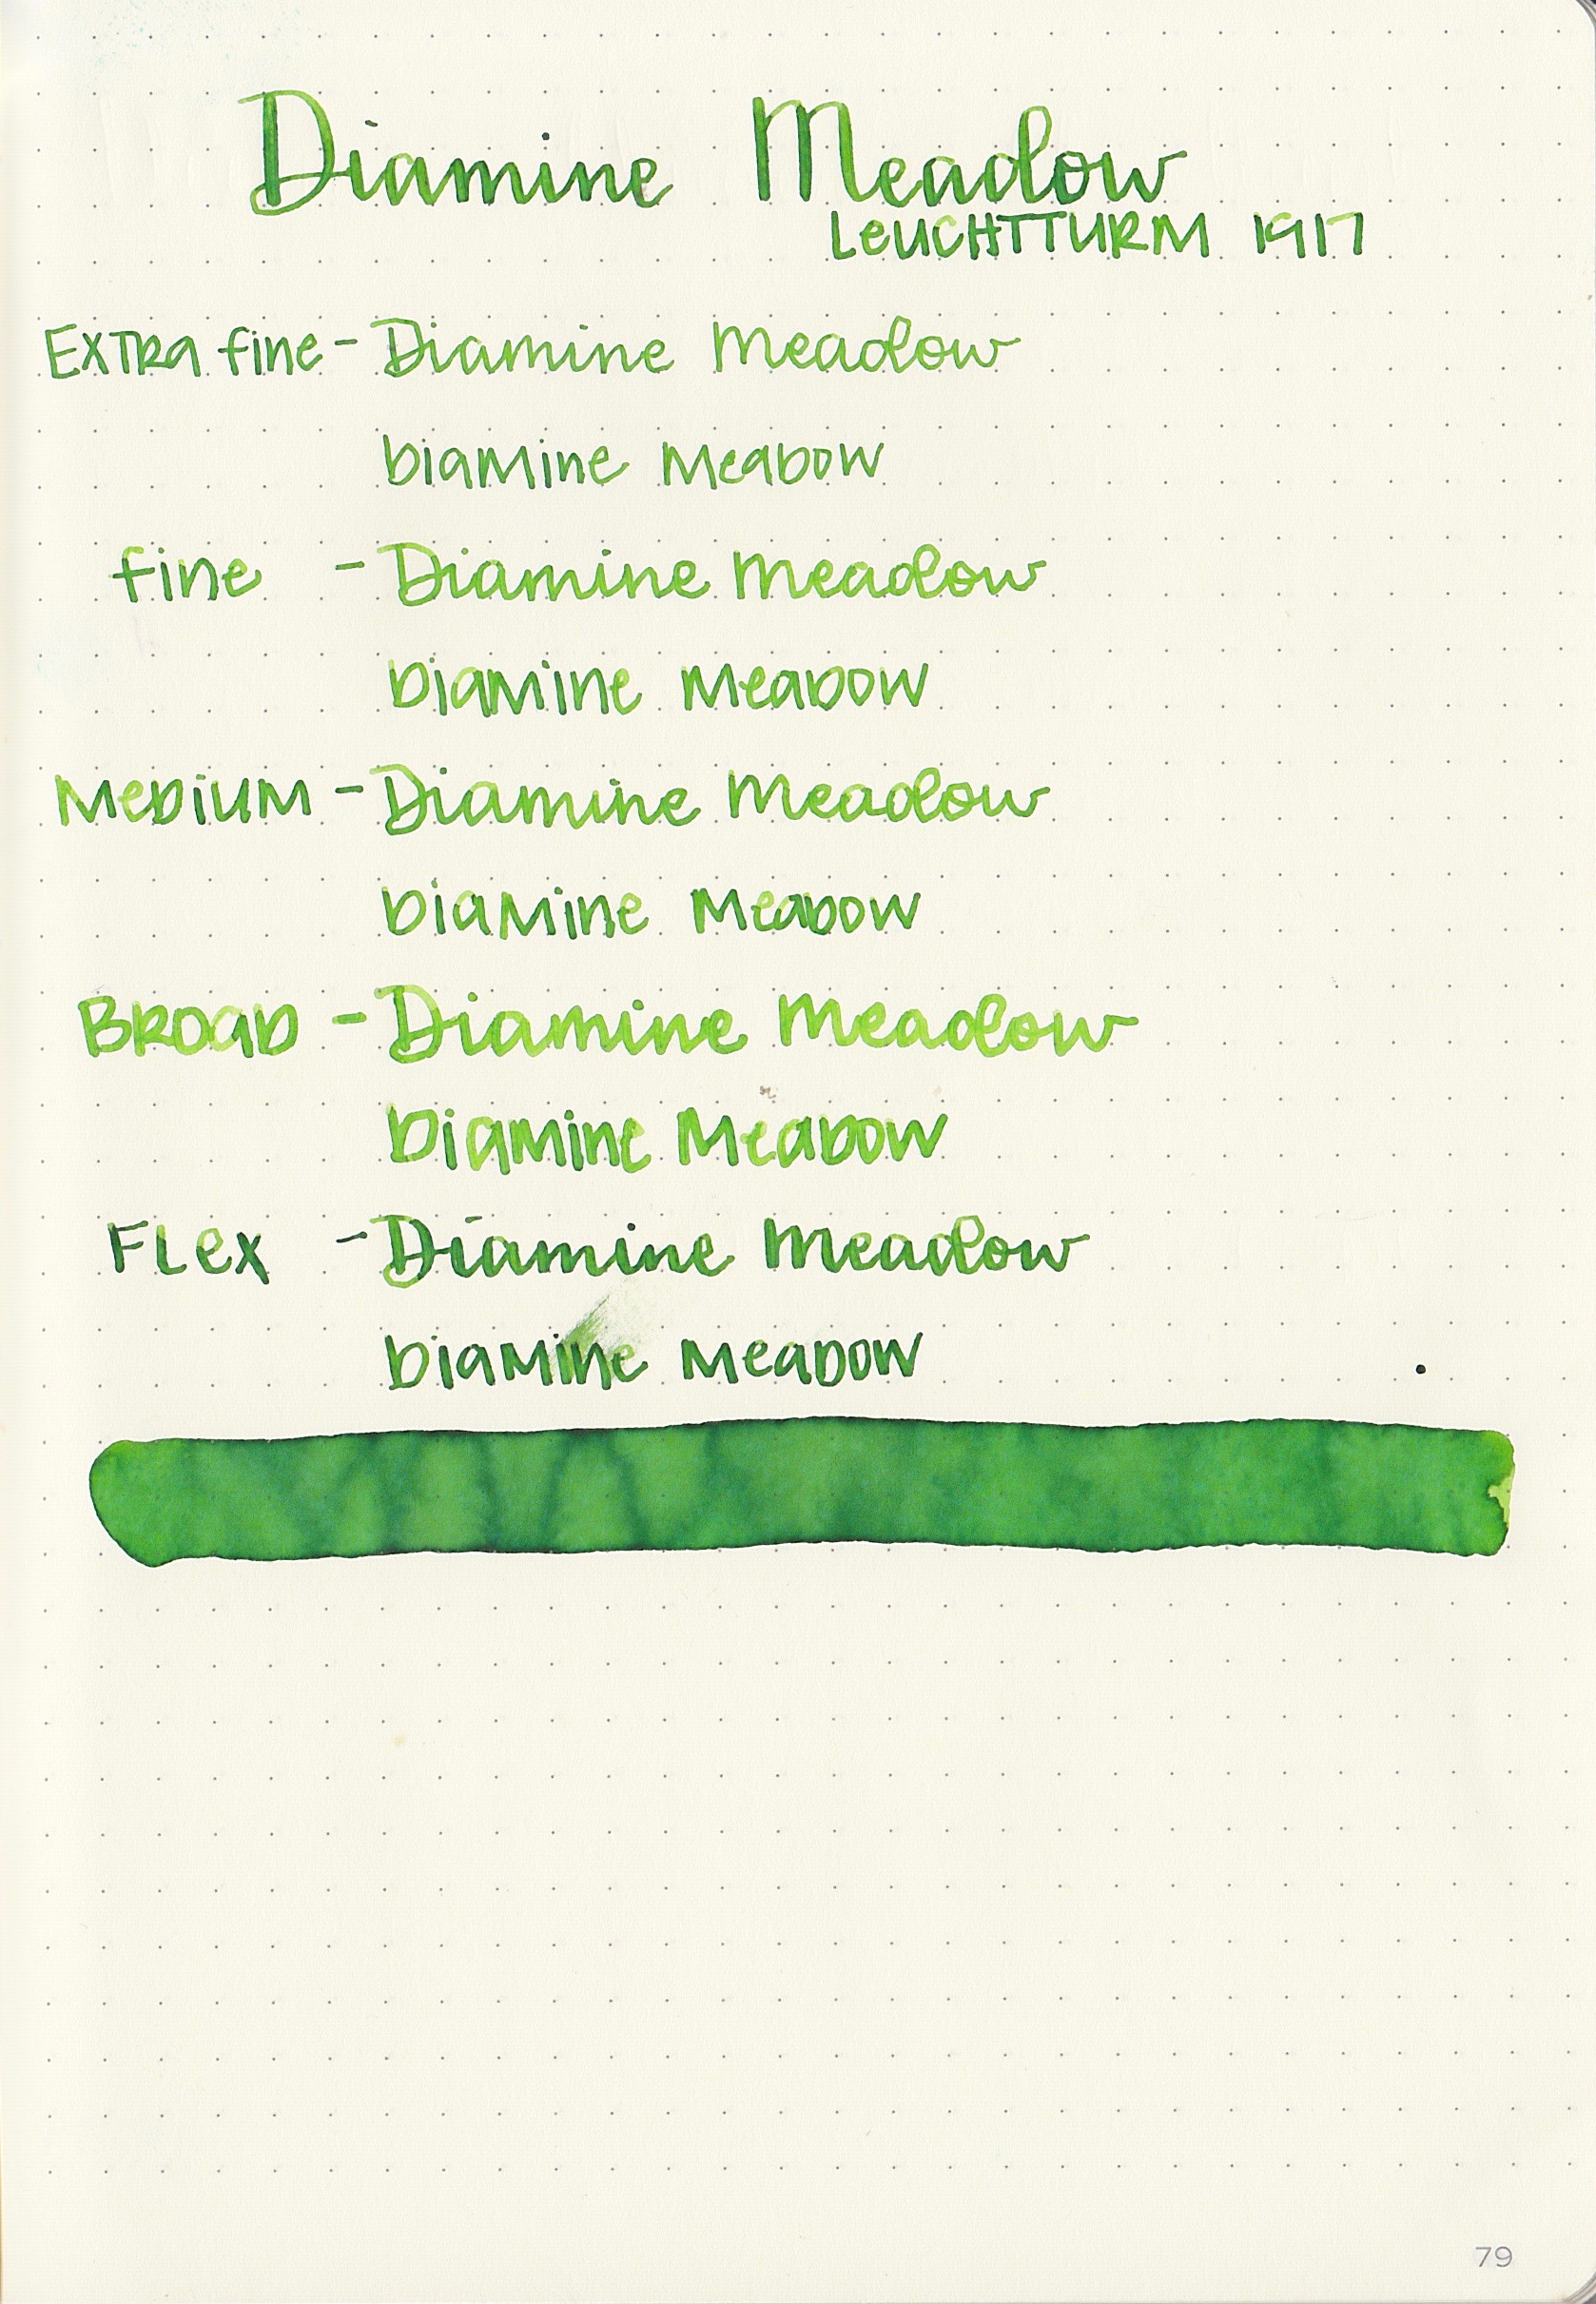 Diamine Meadow
LEUCHTTURM 1917
EXTRA fine - Diamine Meadow
DiAMine MeADOW
fine - Diamine Meadow
DiAMine MeADOW
MeDiUM - Diamine Meadow
DiAMine MeADOW
BROAD - Diamine Meadow
DiAMine MeADOW
FLex - Diamine Meadow
DiAMine MeADOW
79